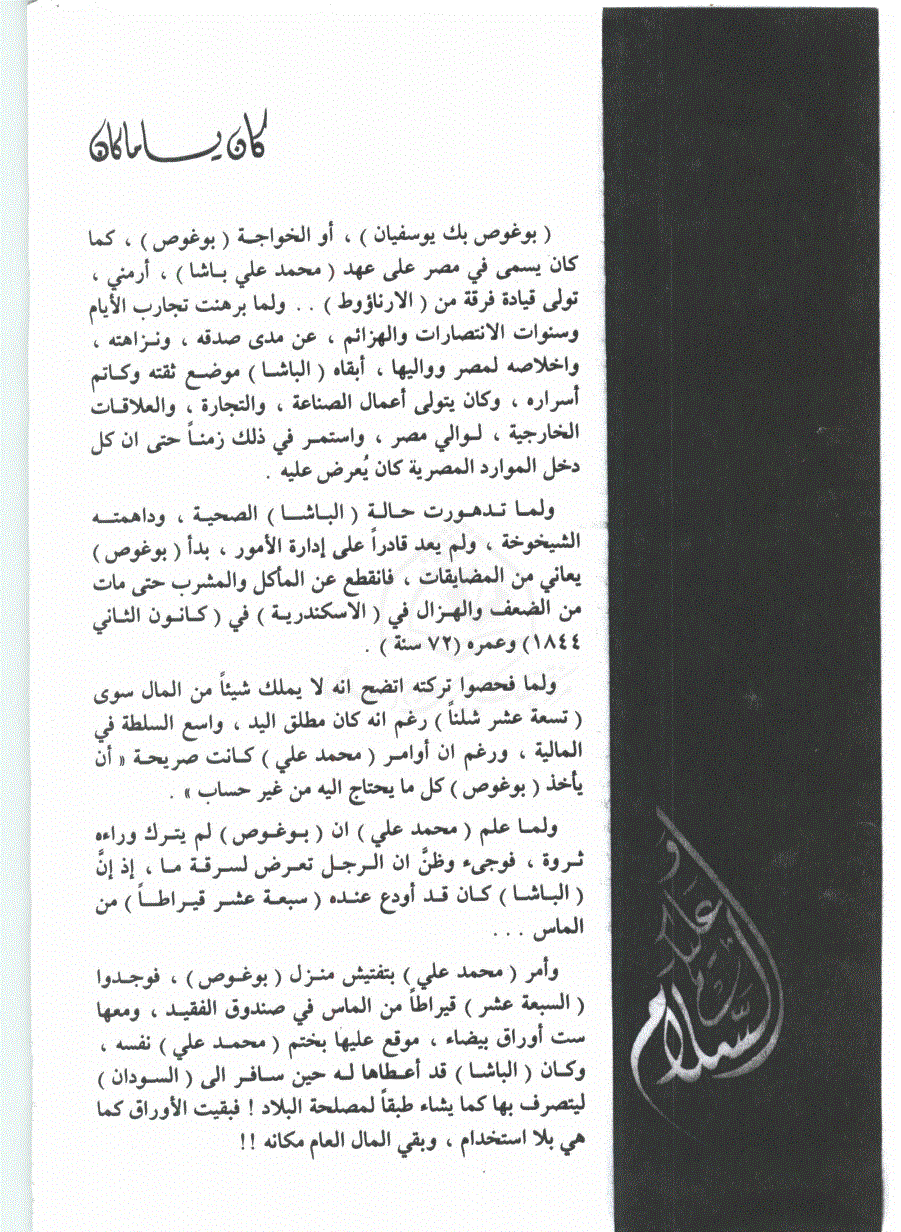 كان يا ما كان
( بوغوص بك يوسفيان ) ، أو الخواجـة ( بوغوص ) ، كما
كان يسمى في مصر على عهد ( محمد علي بـاشا ) ، أرمني ،
تولى قيادة فرقة من ( الارناؤوط ) . . ولما برهنت تجارب الأيام
وسنوات الانتصارات والهزائم ، عن مدى صدقه ، ونـزاهته ،
واخلاصه لمصر وواليها ، أبقاه ( الباشـا ) موضـع ثقته وكـاتم
أسراره ، وكان يتولى أعمال الصناعة ، والتجارة ، والعلاقـات
الخارجية ، لـوالي مصر ، واستمـر في ذلك زمنـاً حتى ان كل
دخل الموارد المصرية كان يُعرض عليه .
ولمـا تـدهـورت حـالـة ( البـاشــا ) الصحية ، وداهمتــه
الشيخوخة ، ولم يعد قادراً على إدارة الأمور ، بدأ ( بوغوص )
يعاني من المضايقات ، فانقطع عن المأكل والمشرب حتى مات
من الضعف والهـزال في ( الاسكندرية ) في ( كـانـون الثاني
١٨٤٤) وعمره (٧٢ سنة ) .
ولما فحصوا تركته اتضح انه لا يملك شيئاً من المال سوى
( تسعة عشر شلناً ) رغم انه كان مطلق اليد ، واسع السلطة في
المالية ، ورغم ان أوامـر ( محمد علي ) كـانت صريحـة « أن
يأخذ ( بوغوص ) كل ما يحتاج اليه من غير حساب » .
ولمـا علم ( محمد علي ) ان ( بـوغـوص ) لم يتـرك وراءه
ثـروة ، فوجىء وظنَّ ان الـرجل تعـرض لسرقـة مـا ، إذ إنَّ
( البـاشـا ) كـان قـد أودع عنـده ( سبعـة عشـر قيـراطــاً ) من
الماس . . .
وأمر ( محمد علي ) بتفتيش منـزل ( بوغـوص ) ، فوجـدوا
( السبعة عشر ) قيراطاً من الماس في صندوق الفقيـد ، ومعها
ست أوراق بيضاء ، موقع عليها بختم ( محمـد علي ) نفسه ،
وكـان ( الباشا ) قد أعـطاها لـه حين سـافـر الى ( السـودان )
ليتصرف بها كما يشاء طبقاً لمصلحة البلاد ! فبقيت الأوراق كما
هي بلا استخدام ، وبقي المال العام مكانه !!
وعليكم السلام